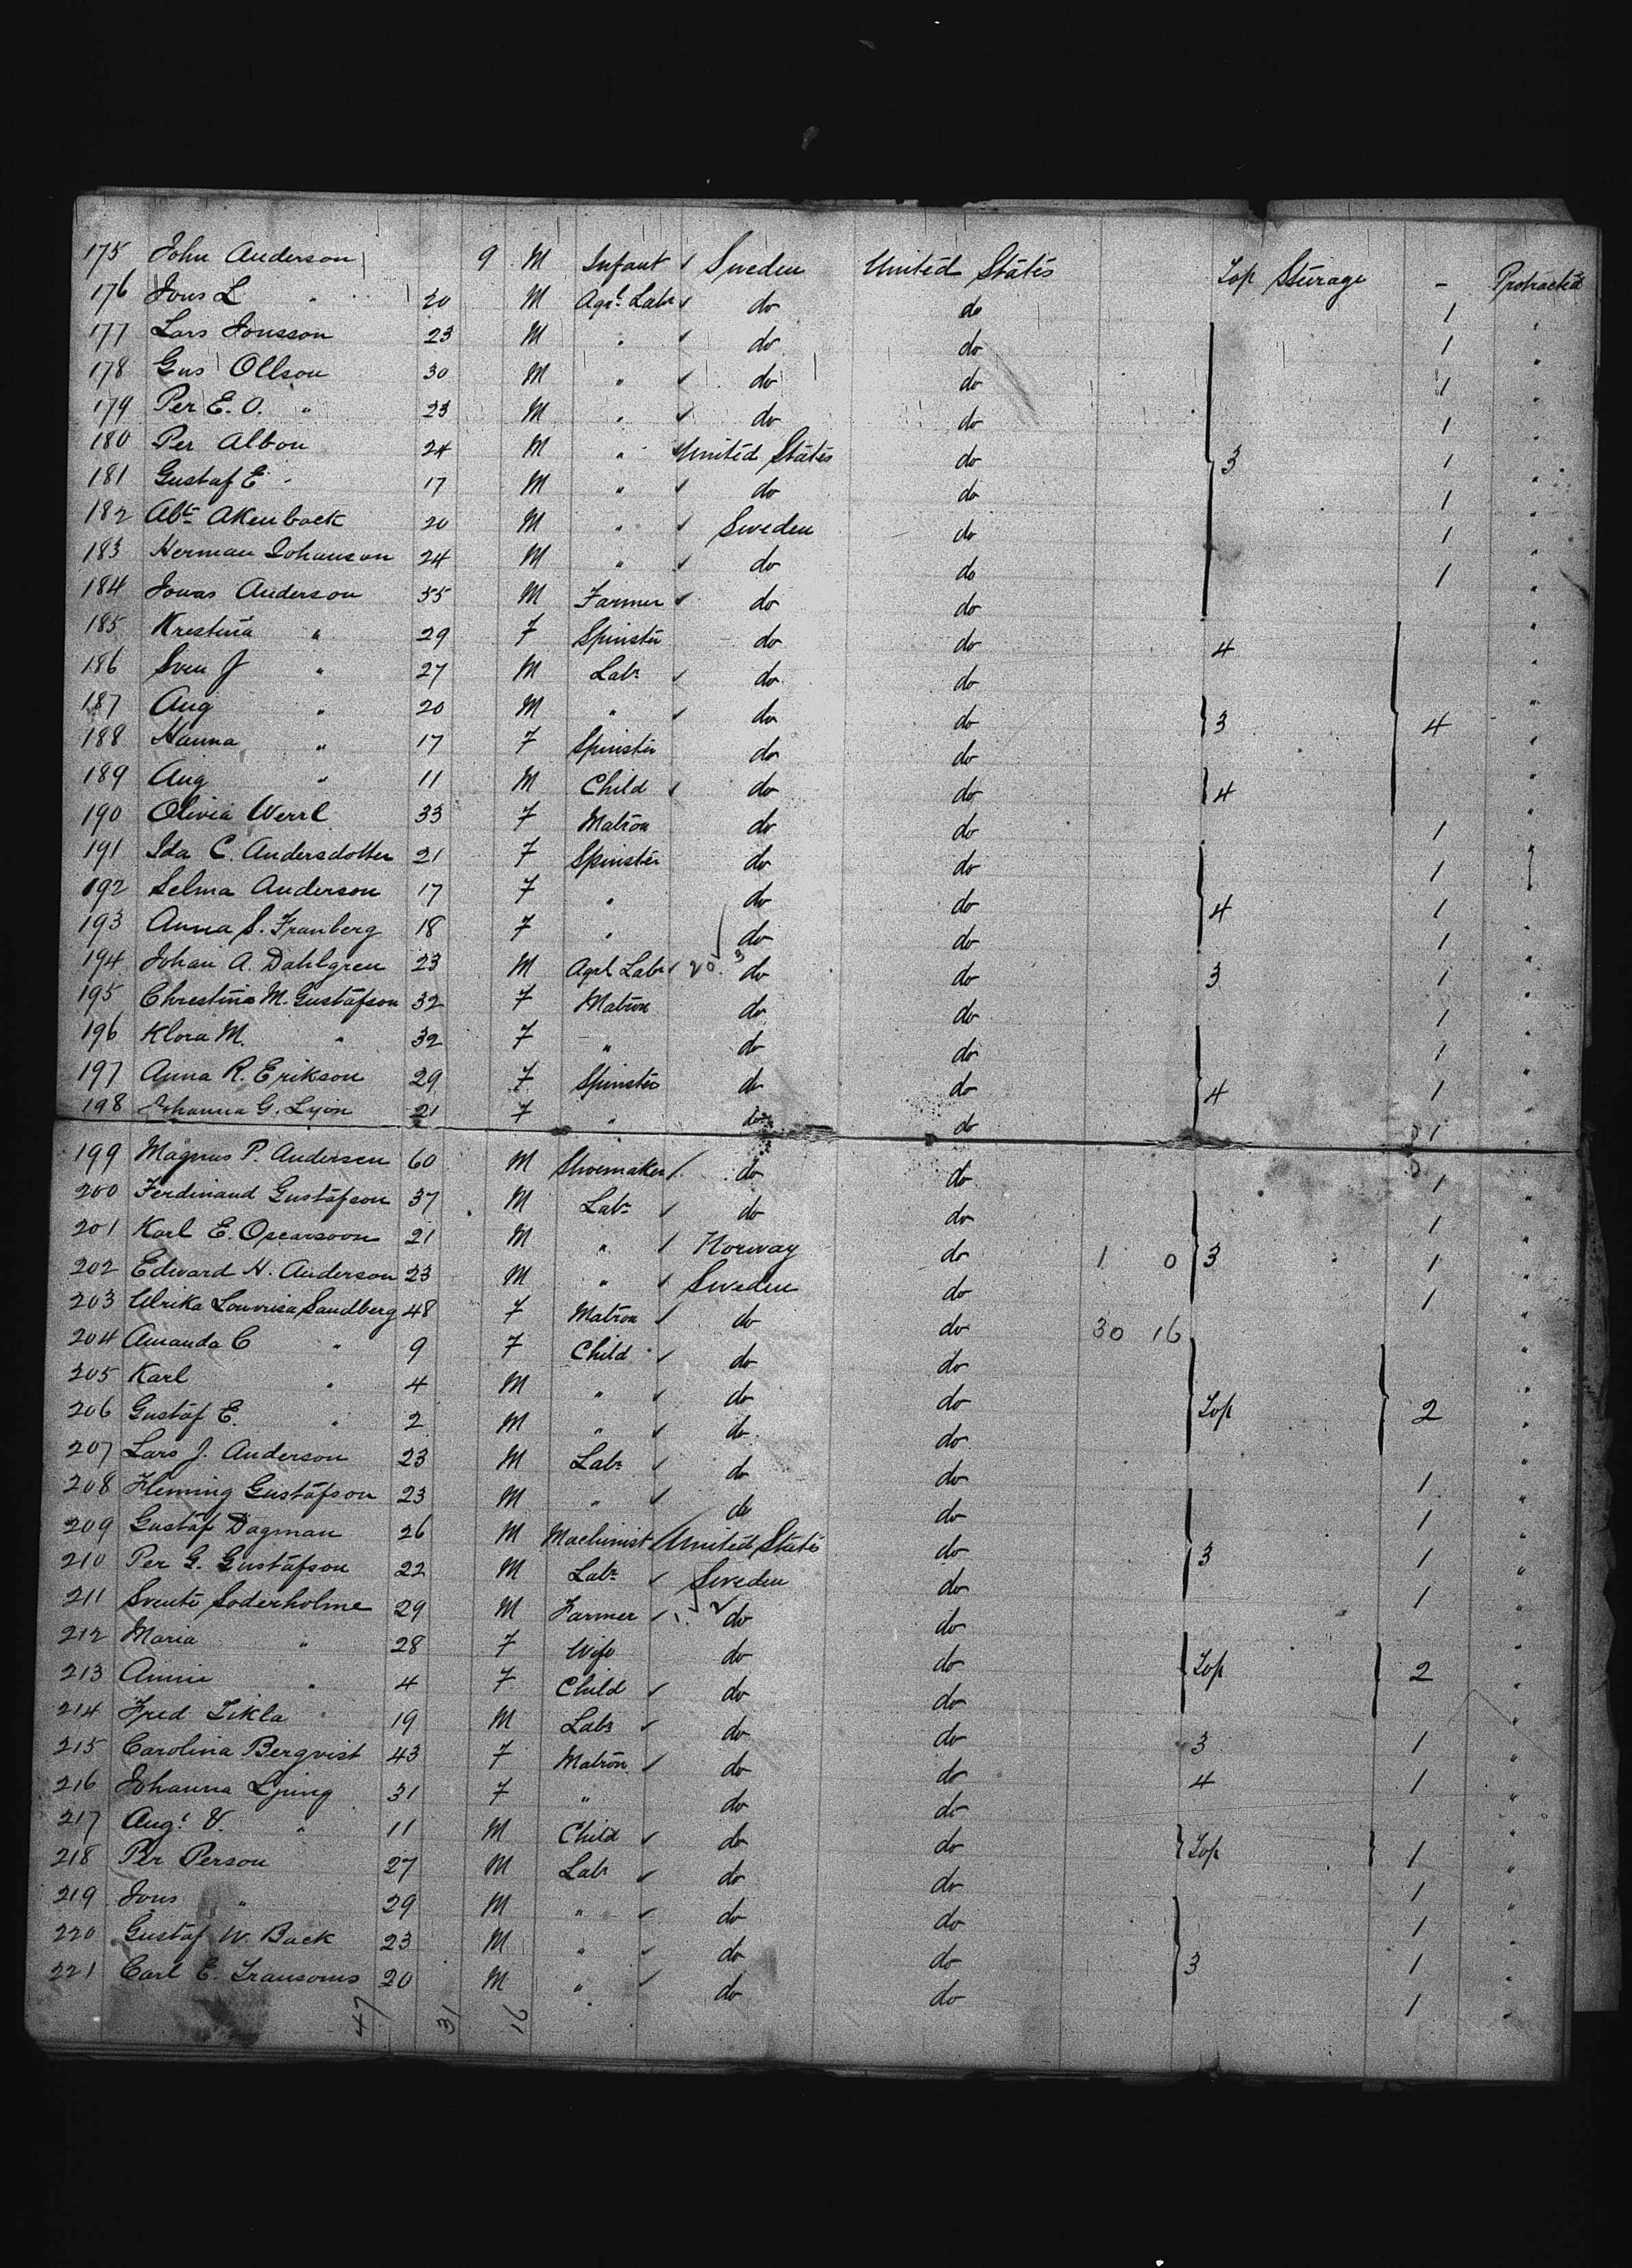 175 John Anderson 9 M Infant ✓ Sweden United States Top Steerage - Protracted
176 Jons L " 20 M Agrl. Labr ✓ do do 1 "
177 Lars Jonsson 23 M " ✓ do do 1 "
178 Gus Ollson 30 M " ✓ do do 1 "
179 Per E. O. " 23 M " ✓ do do 1 "
180 Per Albon 24 M " United States do } 3 1 "
181 Gustaf E " 17 M " ✓ do do 1 "
182 Abt Akenback 20 M " ✓ Sweden do 1 "
183 Herman Johanson 24 M " ✓ do do 1 "
184 Jonas Anderson 35 M Farmer ✓ do do "
185 Krestina " 29 F Spinster do do 4 "
186 Sven J " 27 M Labr ✓ do do "
187 Aug " 20 M " ✓ do do } 3 } 4 "
188 Hanna " 17 F Spinster do do "
189 Aug " 11 M Child ✓ do do } 4 "
190 Olivia Werrl 33 F Matron do do 1
191 Ida C. Andersdotter 21 F Spinster do do 1
192 Selma Anderson 17 F " do do } 4 1
193 Anna S. Franberg 18 F " do do 1 "
194 Johan A. Dahlgren 23 M Agrl Labr ✓ 20 3 do do 3 1 "
195 Chrestina M. Gustafson 32 F Matron do do 1 "
196 Klora M. " 32 F " do do 1 "
197 Anna R. Erikson 29 F Spinster do do } 4 1 "
198 Johanna G. Lyon 21 F " do do 1 "
199 Magnus P. Andersen 60 M Shoemaker ✓ do do 1 "
200 Ferdinand Gustafson 37 M Labr ✓ do do 1 "
201 Karl E. Oscarsoon 21 M " ✓ Norway do 1 0 } 3 1 "
202 Edward H. Anderson 23 M " ✓ Sweden do 1 "
203 Ulrika Louvisa Sandberg 48 F Matron ✓ do do 30 16 "
204 Amanda C " 9 F Child ✓ do do "
205 Karl " 4 M " ✓ do do } Top } 2 "
206 Gustaf E. " 2 M " ✓ do do "
207 Lars J. Anderson 23 M Labr ✓ do do 1 "
208 Fleming Gustafson 23 M " ✓ do do 1 "
209 Gustaf Dagman 26 M Machinist ✓ United States do } 3 1 "
210 Per G. Gustafson 22 M Labr ✓ Sweden do 1 "
211 Svente Soderholme 29 M Farmer ✓ 1 2 do do "
212 Maria " 28 F Wife do do } Top } 2 "
213 Annie " 4 F Child ✓ do do "
214 Fred Tikla 19 M Labr ✓ do do 3 1 "
215 Carolina Bergvist 43 F Matron ✓ do do 4 1 "
216 Johanna Ljung 31 F " do do "
217 Augt. V. " 11 M Child ✓ do do } Top } 1 "
218 Per Person 27 M Labr ✓ do do 1 "
219 Jons " 29 M " ✓ do do 1 "
220 Gustaf W. Back 23 M " ✓ do do } 3 1 "
221 Carl E. Transoms 20 M " ✓ do do 1 "
47 31 16